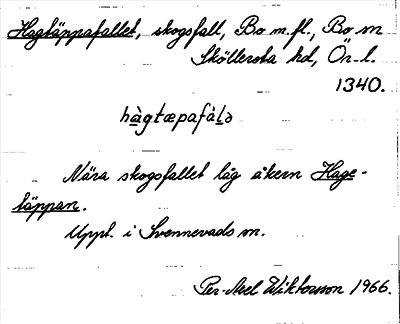 Hagtäppafallet, skogsfall, Bo m.fl., Bo sn
Sköllersta hd, Ör. l.
1340.
hàgtæpafàlə
Nära skogsfallet låg åkern Hage-
täppan.
Uppt. i Svennevads sn.
Per-Axel Wiktorsson 1966.